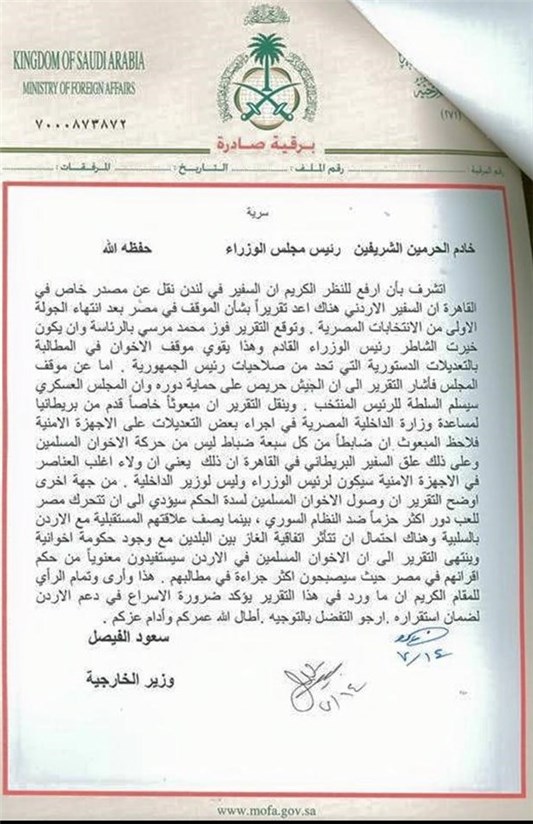 KINGDOM OF SAUDI ARABIA
MINISTRY OF FOREIGN AFFAIRS
٧٠٠٠٨٧٣٨٧٢
(٢٧١)
برقية صادرة
رقم البرقية : رقم الملف : التاريخ : المرفقات :
سرية
خادم الحرمين الشريفين رئيس مجلس الوزراء حفظه الله
اتشرف بأن ارفع للنظر الكريم ان السفير في لندن نقل عن مصدر خاص في
القاهرة ان السفير الاردني هناك اعد تقريراً بشأن الموقف في مصر بعد انتهاء الجولة
الاولى من الانتخابات المصرية . وتوقع التقرير فوز محمد مرسي بالرئاسة وان يكون
خيرت الشاطر رئيس الوزراء القادم وهذا يقوي موقف الاخوان في المطالبة
بالتعديلات الدستورية التي تحد من صلاحيات رئيس الجمهورية . اما عن موقف
المجلس فأشار التقرير الى ان الجيش حريص على حماية دوره وان المجلس العسكري
سيسلم السلطة للرئيس المنتخب . وينقل التقرير ان مبعوثاً خاصاً قدم من بريطانيا
لمساعدة وزارة الداخلية المصرية في اجراء بعض التعديلات على الاجهزة الامنية
فلاحظ المبعوث ان ضابطاً من كل سبعة ضباط ليس من حركة الاخوان المسلمين
وعلى ذلك علق السفير البريطاني في القاهرة ان ذلك يعني ان ولاء اغلب العناصر
في الاجهزة الامنية سيكون لرئيس الوزراء وليس لوزير الداخلية . من جهة اخرى
اوضح التقرير ان وصول الاخوان المسلمين لسدة الحكم سيؤدي الى ان تتحرك مصر
للعب دور اكثر حزماً ضد النظام السوري ، بينما يصف علاقتهم المستقبلية مع الاردن
بالسلبية وهناك احتمال ان تتأثر اتفاقية الغاز بين البلدين مع وجود حكومة اخوانية
وينتهى التقرير الى ان الاخوان المسلمين في الاردن سيستفيدون معنوياً من حكم
اقرانهم في مصر حيث سيصبحون اكثر جراءة في مطالبهم . هذا وأرى وتمام الرأي
للمقام الكريم ان ما ورد في هذا التقرير يؤكد ضرورة الاسراع في دعم الاردن
لضمان استقراره .ارجو التفضل بالتوجيه .أطال الله عمركم وأدام عزكم .
سعود الفيصل
٧/١٤
وزير الخارجية
٧/١٤
www.mofa.gov.sa